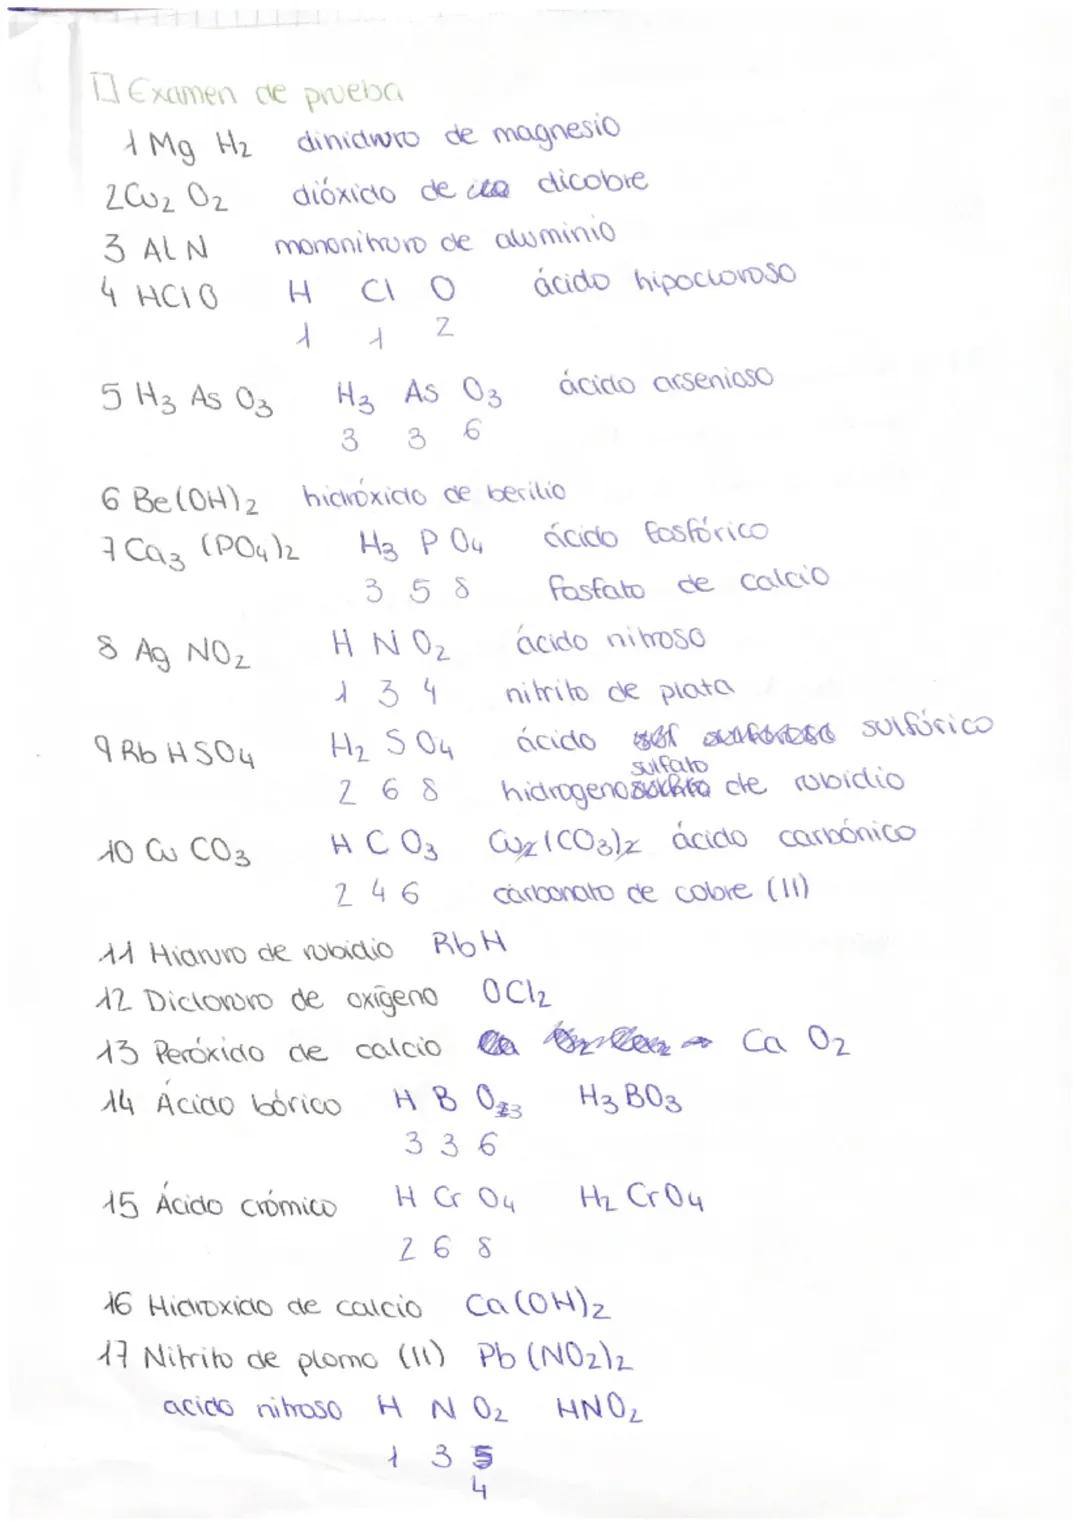 Examen de prueba
1 Mg H2 dinidruro de magnesio
2 Cu2 O2 dióxido de dicobre
3 AlN mononitruro de aluminio
4 HClO H Cl O ácido hipocloroso
1 1 2
5 H3 As O3 H3 As O3 ácido arsenioso
3 3 6
6 Be(OH)2 hidróxido de berilio
7 Ca3 (PO4)2 H3 P O4 ácido fosfórico
3 5 8 fosfato de calcio
8 Ag NO2 H N O2 ácido nitroso
1 3 4 nitrito de plata
9 Rb HSO4 H2 S O4 ácido sulfúrico
sulfato
2 6 8 hidrogeno de rubidio
10 Cu CO3 H C O3 Cu2(CO3)2 ácido carbónico
2 4 6 carbonato de cobre (II)
11 Hidruro de rubidio RbH
12 Dicloruro de oxígeno OCl2
13 Peróxido de calcio Ca O2
14 Ácido bórico H B O3 H3 BO3
3 3 6
15 Ácido crómico H Cr O4 H2 CrO4
2 6 8
16 Hidroxido de calcio Ca(OH)2
17 Nitrito de plomo (II) Pb (NO2)2
acido nitroso H N O2 HNO2
1 3 5
4